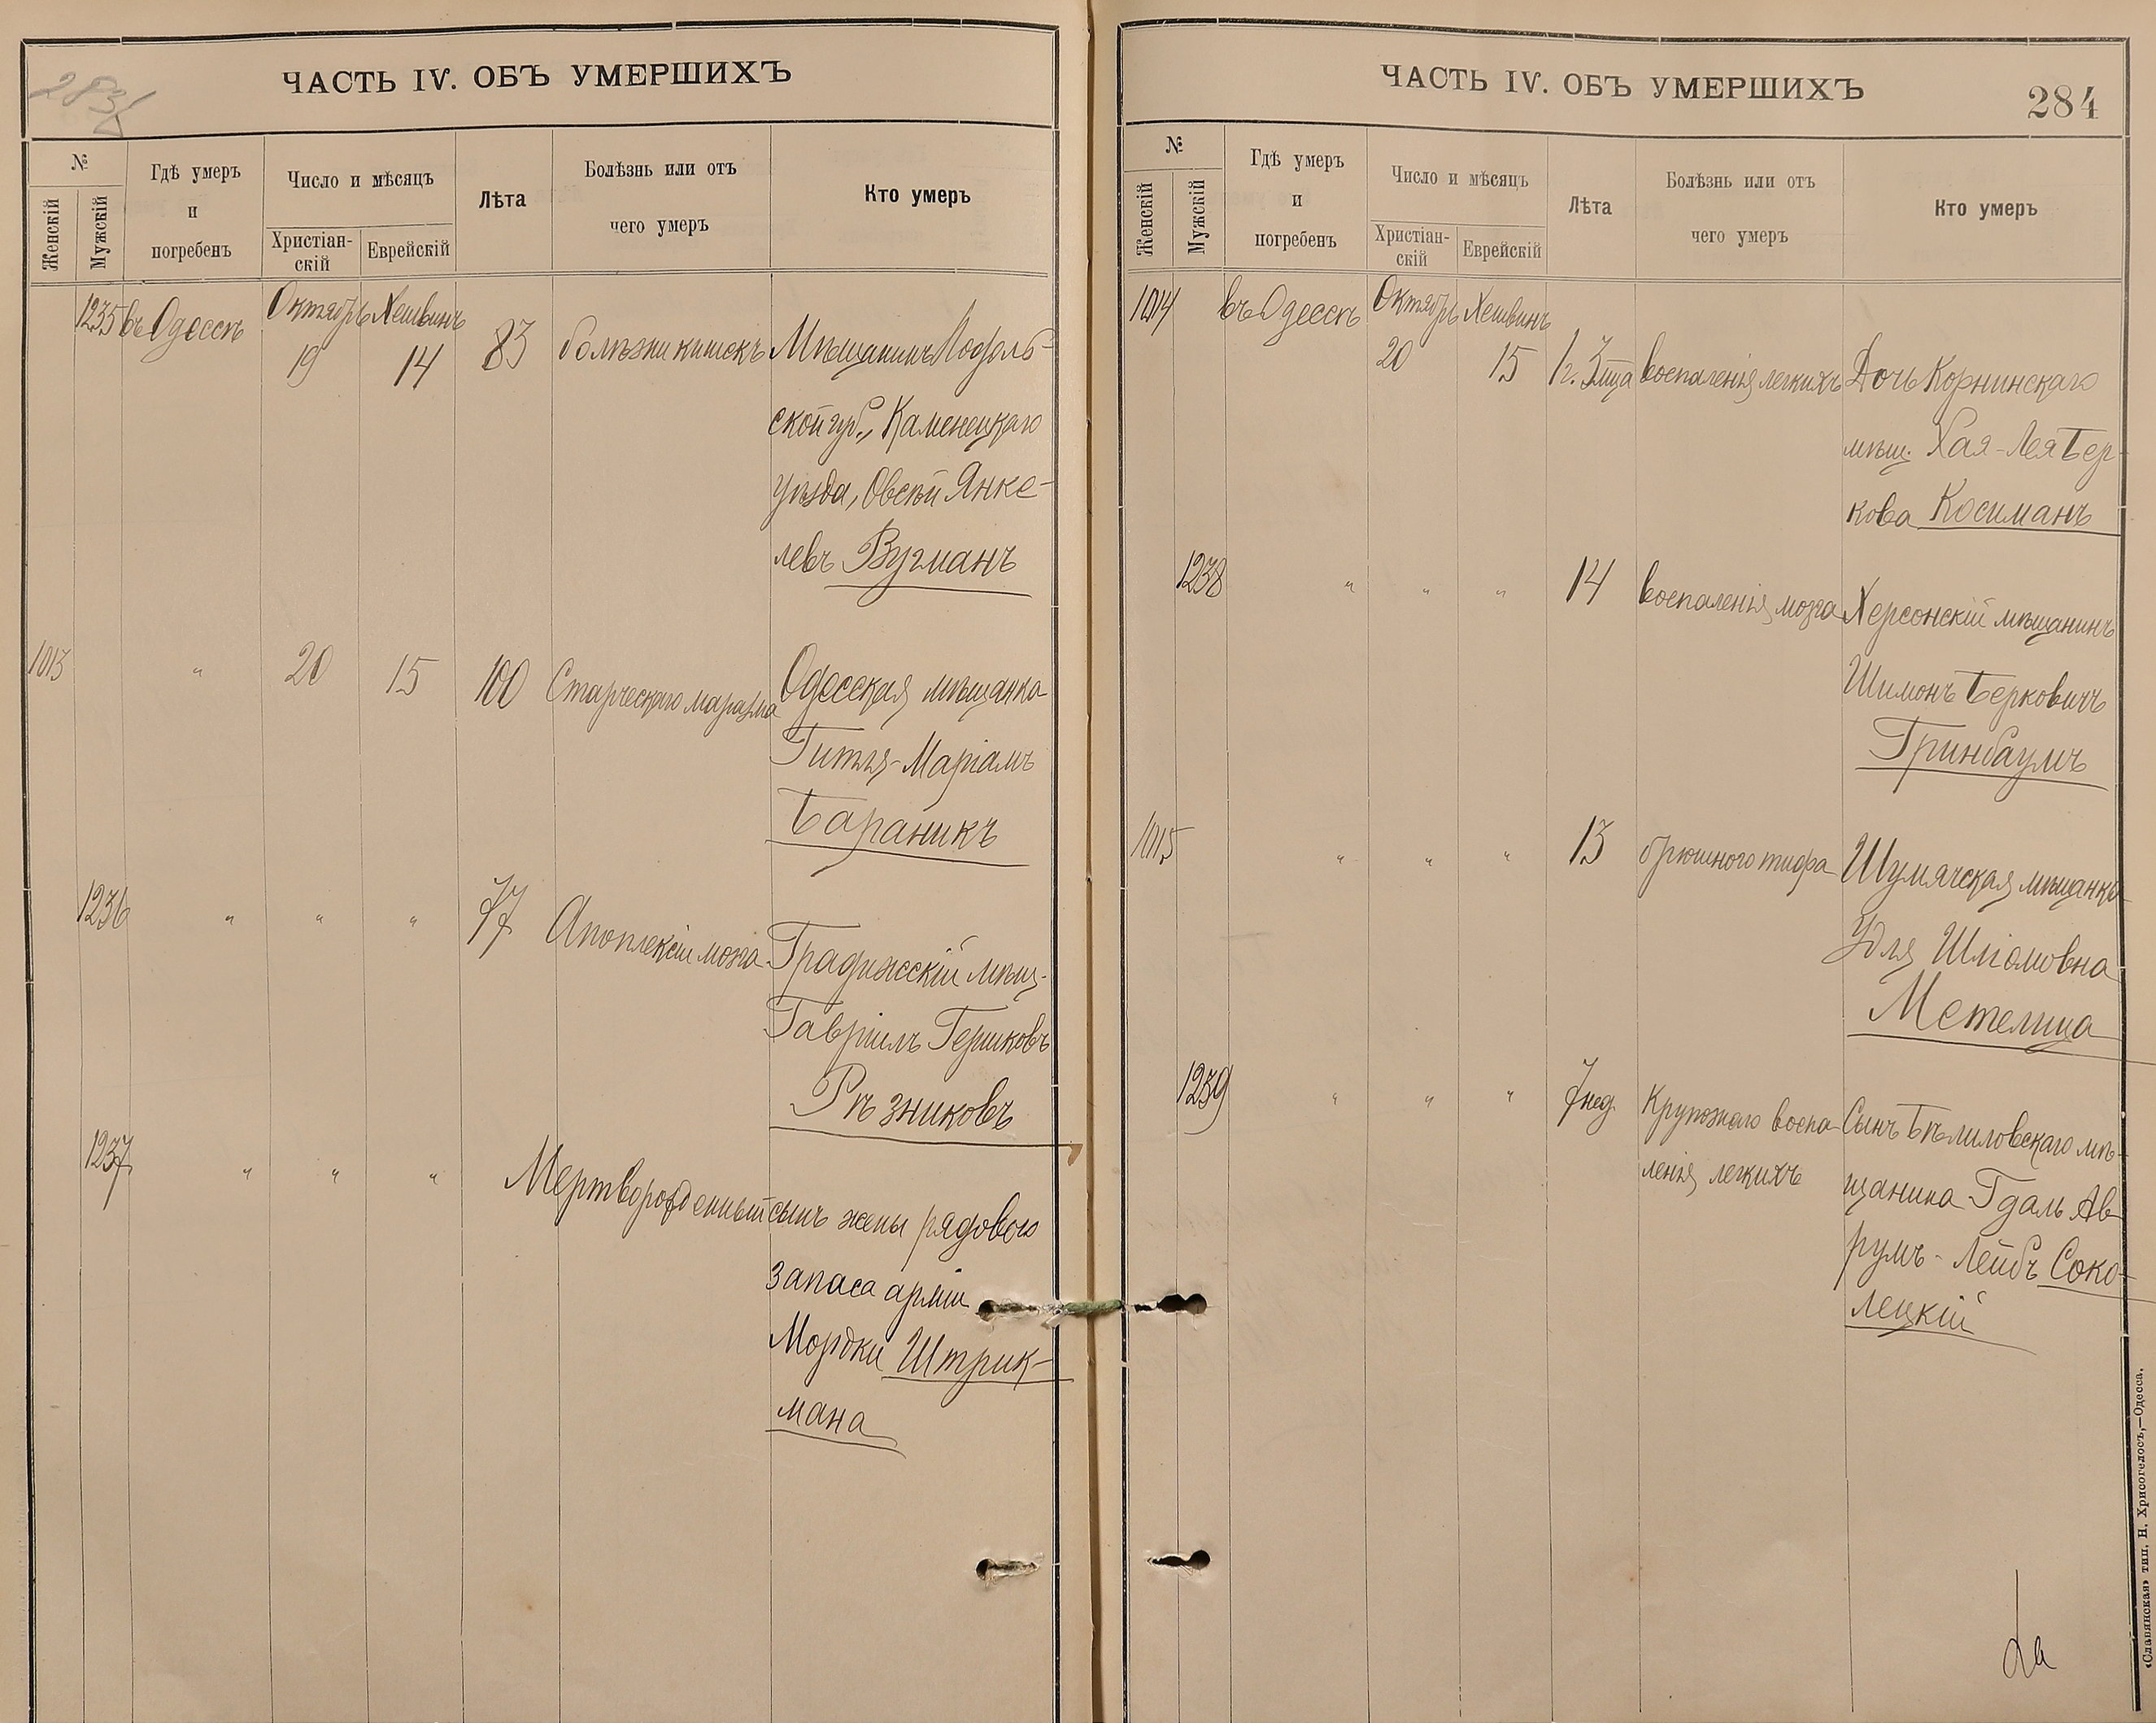 283
ЧАСТЬ IV. ОБЪ УМЕРШИХЪ
№
Женскій
Мужскій
Гдѣ умеръ
и
погребенъ
Число и мѣсяцъ
Христіан-
скій
Еврейскій
Лѣта
Болѣзнь или отъ
чего умеръ
Кто умеръ
1235 въ Одессѣ Октябрь Хешвинъ
19 14 83 болѣзни кишекъ Мѣщанинъ Подоль-
ской губ., Каменецкаго
уѣзда, Овсѣй Янке-
левъ Вугманъ
1013 " 20 15 100 Старческаго маразма Одесская мѣщанка
Гитля-Маріамъ
Бараникъ
1236 " " " 77 Апоплексіи мозга Градижскій мѣщ.
Гавріилъ Гершковъ
Рѣзниковъ
1237 " " " Мертворожденный сынъ жены рядового
запаса арміи
Мордки Штрик-
мана
ЧАСТЬ IV. ОБЪ УМЕРШИХЪ
284
№
Женскій
Мужскій
Гдѣ умеръ
и
погребенъ
Число и мѣсяцъ
Христіан-
скій
Еврейскій
Лѣта
Болѣзнь или отъ
чего умеръ
Кто умеръ
1014 въ Одессѣ Октябрь Хешвинъ
20 15 1 г. 3 мца воспаленія легкихъ Дочь Корнинскаго
мѣщ. Хая-Лея Бер-
кова Косиманъ
1238 " " " 14 воспаленія мозга Херсонскій мѣщанинъ
Шимонъ Берковичъ
Гринбаумъ
1015 " " " 13 брюшного тифа Шумячская мѣщанка
Удля Шліомовна
Метелица
1239 " " " 7 нед. Крупознаго воспа- Сынъ Бѣлиловскаго мѣ-
ленія легкихъ щанина Гдаль Ав-
румъ-Лейбъ Соко-
лецкій
«Славянская» тип. Н. Хрисогелосъ,—Одесса.